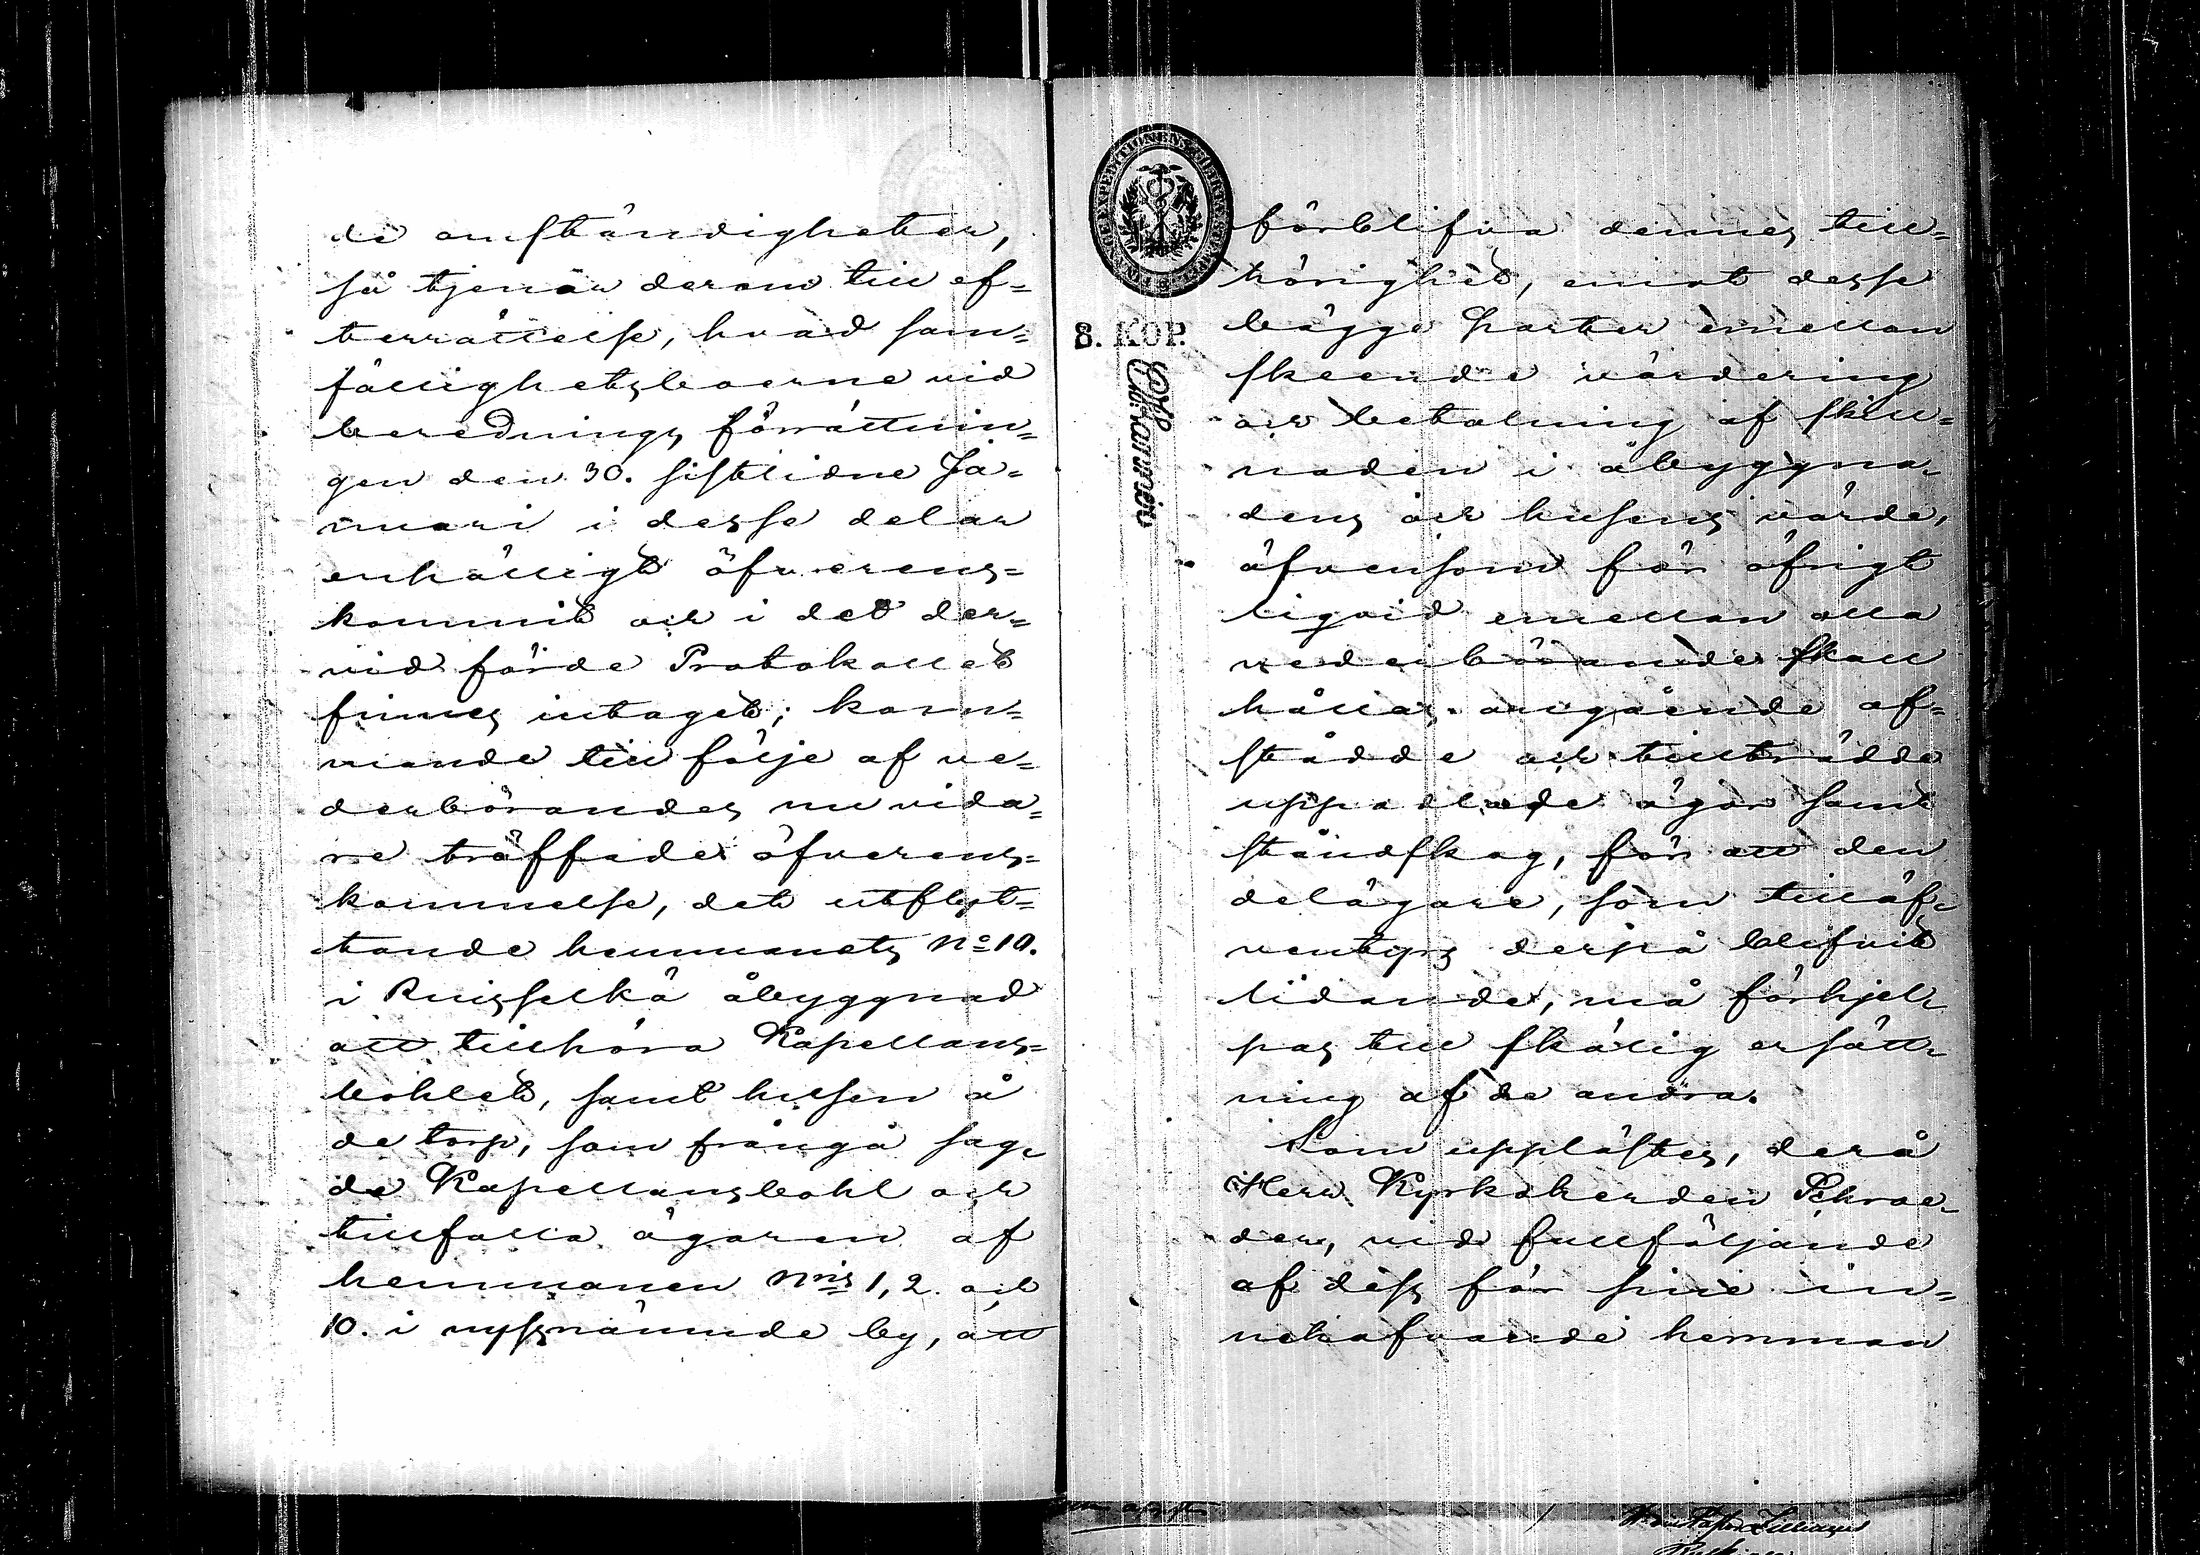 de omständigheter,
så tjenar derom till ef=
terrättelse, hvad sam=
fällighetsboerne vid
berednings förrättnin=
gen den 30. sistlidne Ja=
nuari i desse delar
enhälligt öfverens=
kommit och i det der=
vid förde Protokollet
finnes intaget; kom=
mande till följe af ve=
derbörandes nu vida=
re träffade öfverens=
kommelse, det utflyt=
tande hemmanets No 10.
i Ruisselkä åbyggnad
att tillhöra Kapellans=
bohlet, samt husen å
de torp, som frångå sag=
de Kapellansbohl och
tillfalla ägaren af
hemmanen Nris 1, 2. och
10. i nyssnämnde by, att
8. KOP.
förblifva dennes till=
hörighet, emot desse
bägge parter emellan
skeende värdering
och betalning af skill=
naden i åbyggna=
dens och husens värde,
äfvensom för öfrigt
liqvid emellan alla
vederbörande skall
hållas angående af=
stådde och tillträdde
uppodlade ägor samt
ståndskog, för att den
delägare, som tilläf=
ventyrs derpå blifvit
lidande, må förhjel=
pas till skälig ersätt=
ning af de andra.
Som upplästes, derå
Herr Kyrkoherden Schroe=
der, vid fullföljande
af dess för sine in=
nehafvande hemman